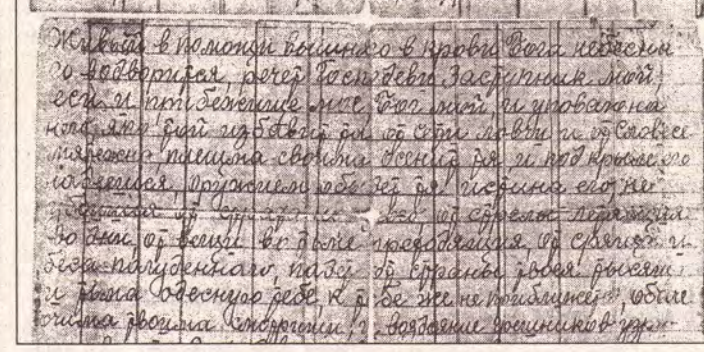 Живый в помощи вышняго в крови Бога небесны
го водворится, речет Господеви Заступник мой
еси и прибежище мое, Бог мой, и уповаю на
него, яко той избавит тя от сети ловчи и от словесе
мятежна плещма своима осенит тя и под крыле его
надеешися, оружием обыдет тя истина его, не
от стрелы летящия
во дни от вещи во тьме преходящия, от сряща и
беса полуденнаго, падет от страны твоея тысяща
и тьма одесную тебе, к тебе же не приближится, обаче
очима твоима смотриши, и воздаяние грешников узр